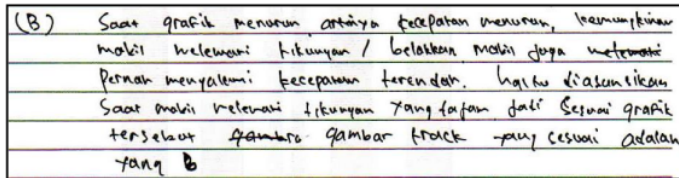 (B) Saat grafik menurun artinya kecepatan menurun, kemungkinan
mobil melewati tikungan / belokkan mobil juga melewati
pernah mengalami kecepatan terendah. hal itu diasumsikan
Saat mobil melewati tikungan yang tajam. jadi sesuai grafik
tersebut gambar track yang sesuai adalah
yang B